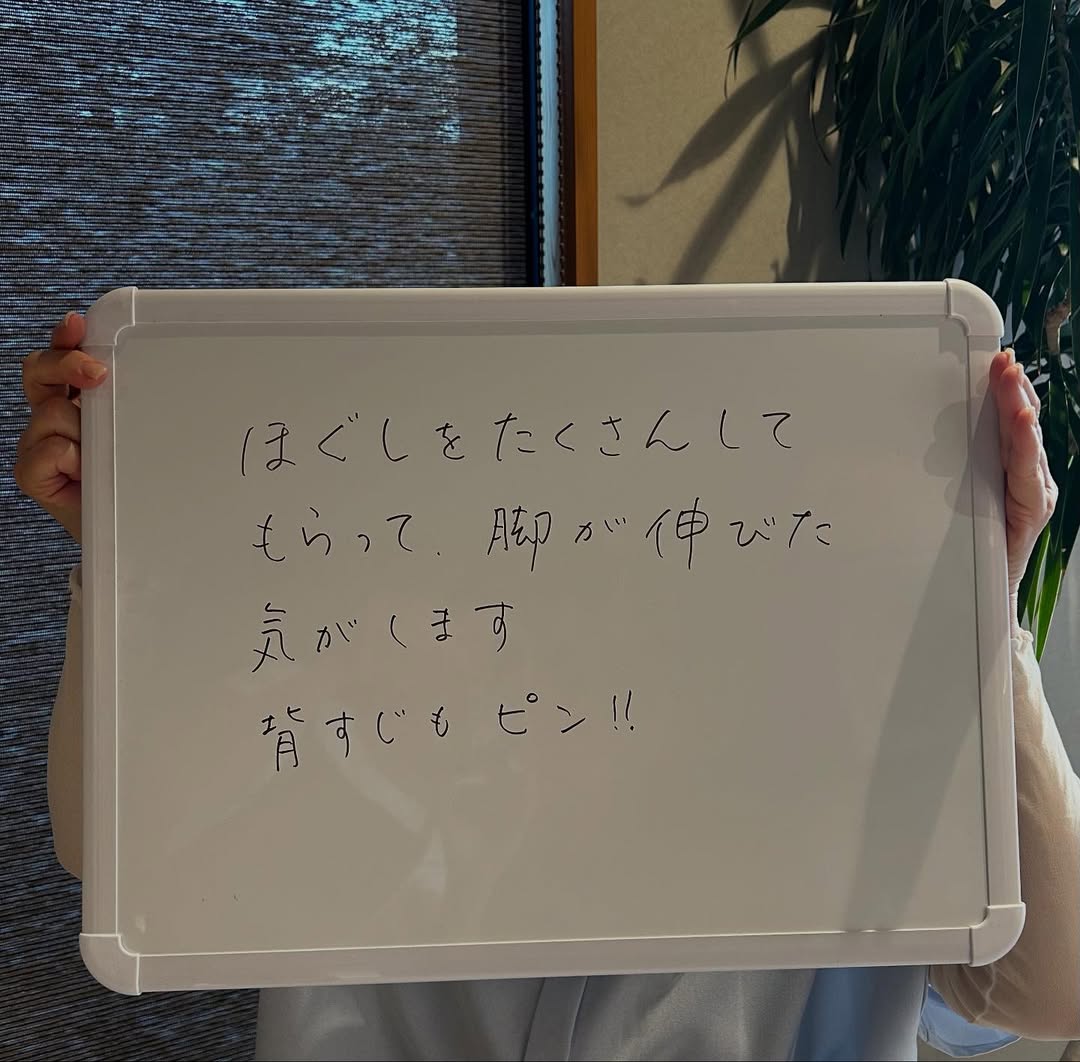 ほぐしをたくさんして
もらって、脚が伸びた
気がします
背すじも ピン!!